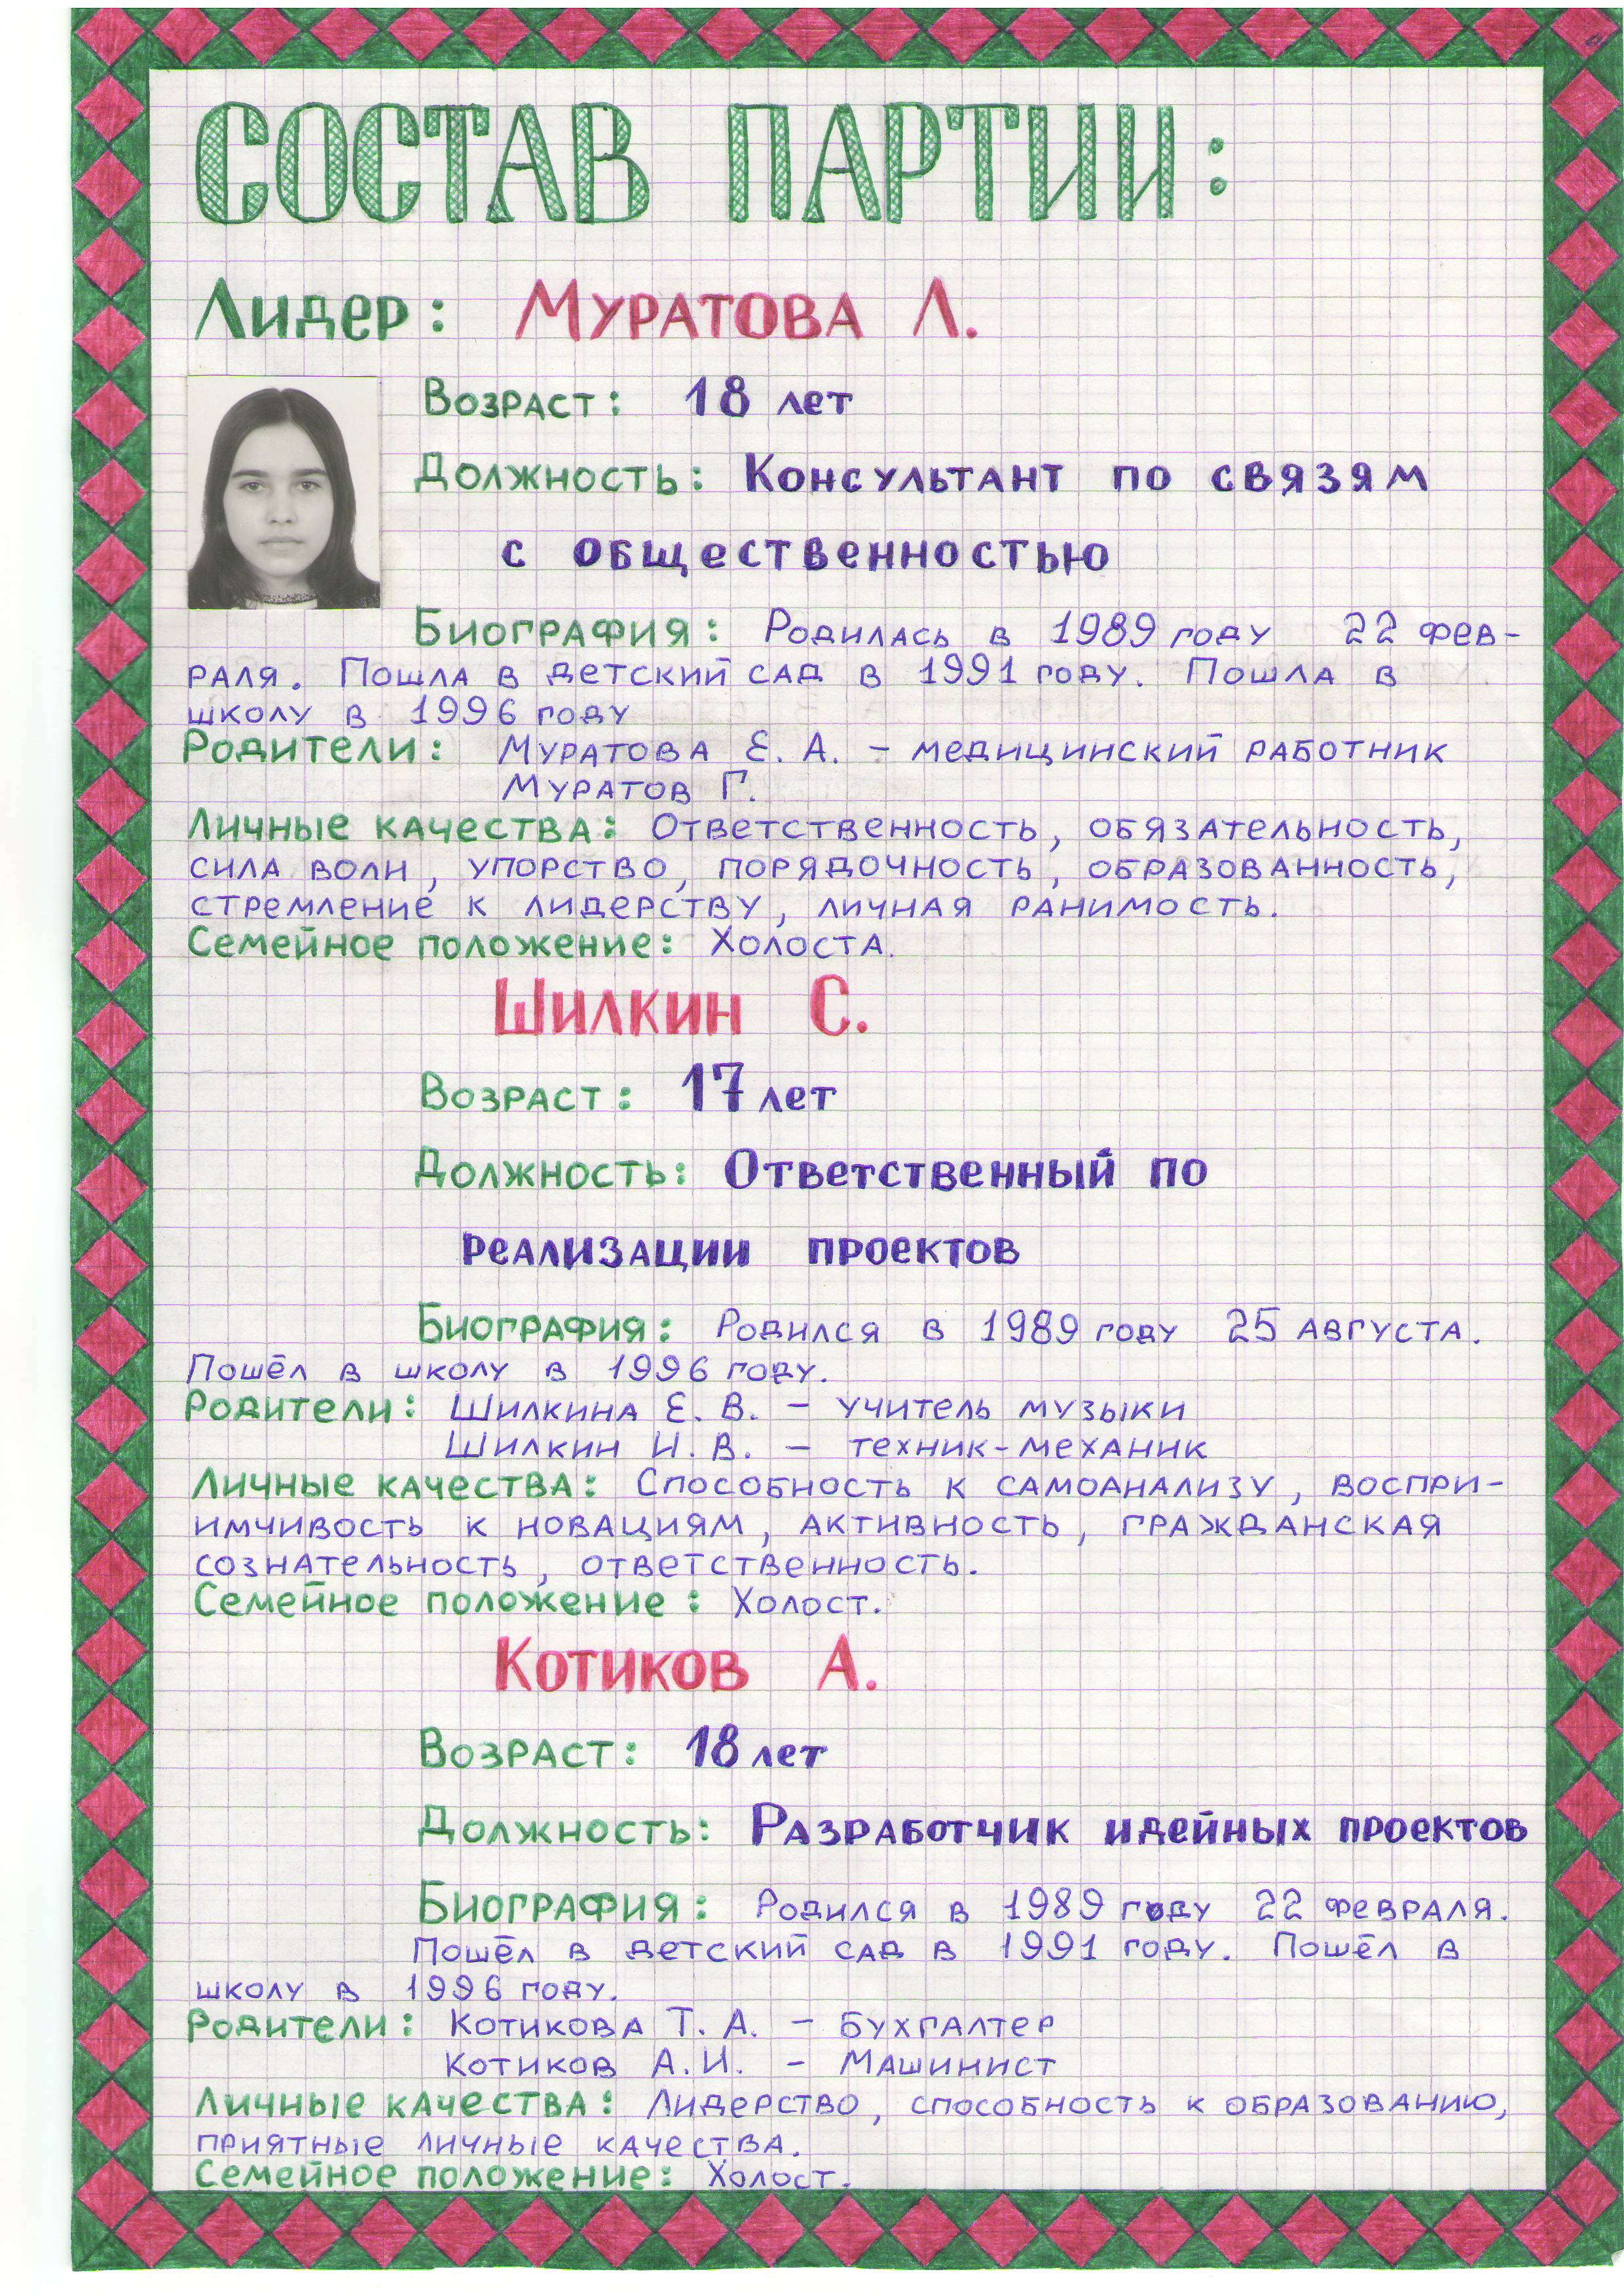 СОСТАВ ПАРТИИ:
Лидер: Муратова Л.
Возраст: 18 лет
Должность: Консультант по связям
с общественностью
Биография: Родилась в 1989 году 22 фев-
раля. Пошла в детский сад в 1991 году. Пошла в
школу в 1996 году
Родители: Муратова Е. А. - медицинский работник
Муратов Г.
Личные качества: Ответственность, обязательность,
сила воли, упорство, порядочность, образованность,
стремление к лидерству, личная ранимость.
Семейное положение: Холоста.
Шилкин С.
Возраст: 17 лет
Должность: Ответственный по
реализации проектов
Биография: Родился в 1989 году 25 августа.
Пошёл в школу в 1996 году.
Родители: Шилкина Е. В. - учитель музыки
Шилкин И. В. - техник-механик
Личные качества: Способность к самоанализу, воспри-
имчивость к новациям, активность, гражданская
сознательность, ответственность.
Семейное положение: Холост.
Котиков А.
Возраст: 18 лет
Должность: Разработчик идейных проектов
Биография: Родился в 1989 году 22 февраля.
Пошёл в детский сад в 1991 году. Пошёл в
школу в 1996 году.
Родители: Котикова Т. А. - Бухгалтер
Котиков А.И. - Машинист
Личные качества: Лидерство, способность к образованию,
приятные личные качества.
Семейное положение: Холост.